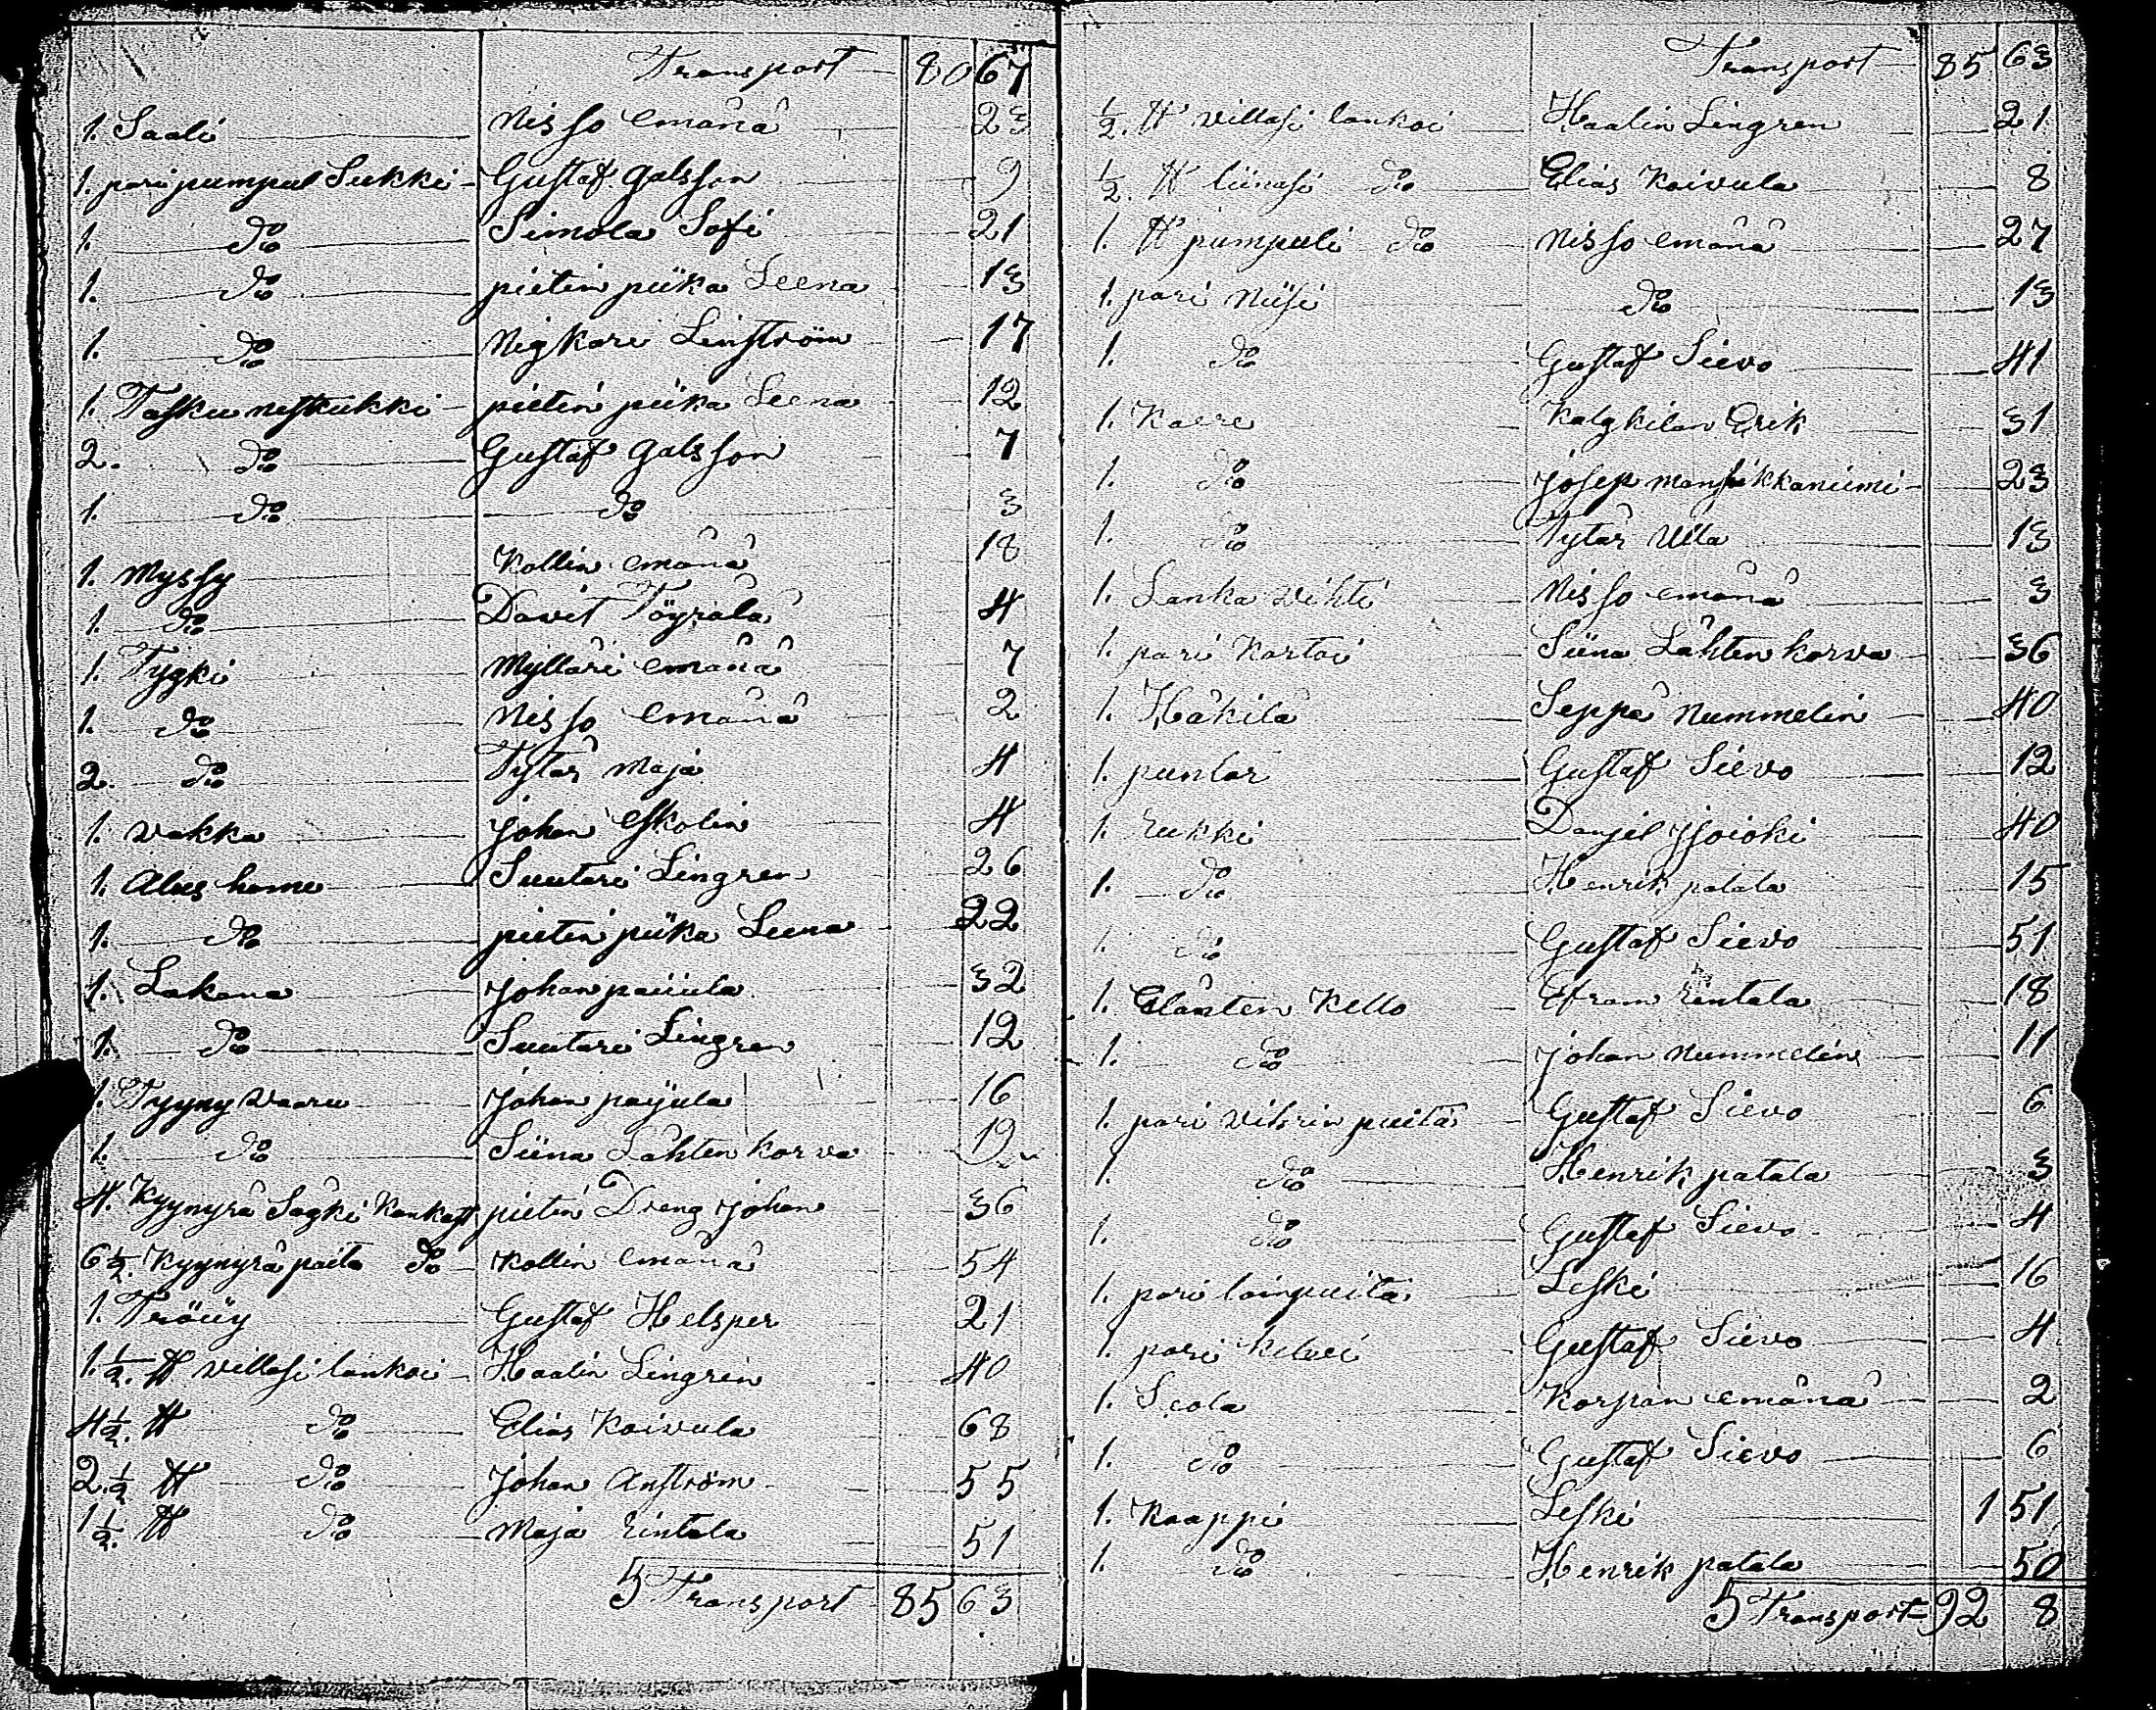 Transport 80 67
1. Saali Nisso emänä 23
1. pari pumpul Sukki Gustaf galsson 9
1. do Simola Sofi 21
1. do pietin piika Leena 13
1. do Nigkari Linström 17
1. Tasku nestuukki pietin piika Leena 12
2. do Gustaf galsson 7
1. do do 3
1. Myssy Kollin emänä 18
1. do Davit Töyrälä 4
1. Tygki Mylläri emänä 7
1. do Nisso emänä 2
2. do Tytär Maja 4
1. vakka Johan Eskolin 4
1. Alus hame Suutari Lingren 26
1. do pietin piika Leena 22
1. Lakana Johan paiiula 32
1. do Suutari Lingren 12
1. Tyyny vaaru Johan payula 16
1. do Siina Lähten korva 19
4. Kyynyrä Sägki Kankast pietin Dreng Johan 36
6 1/2. Kyynyrä paita do Kollin emänä 54
1. Tröüy Gustaf Helsper 21
1. 1/2. ℔ villasi lankoi Haalin Lingrin 40
4 1/2. ℔ do Elias Koivula 68
2. 1/2 ℔ do Johan Anström 55
1 1/2. ℔ do Maja Rintala 51
5 Transport 85 63
Transport 85 63
1/2. ℔ villasi lankoi Haalin Lingren 21
1/2. ℔ liinasi do Elias Koivula 8
1. ℔ pumpuli do Nisso emänä 27
1. pari Niisi do 13
1. do Gustaf Sievo 41
1. Kaire Kalgkilan Erik 31
1. do Josep mansikkaniemi 23
1. do Tytär Ulla 13
1. Lanka vihti Nisso emänä 3
1. pari Kartoi Siina Lähten korva 36
1. Häkilä Seppä Nummelin 40
1. puntar Gustaf Sievo 12
1. Rukki Danjel Isoioki 40
1. do Henrik patala 15
1. do Gustaf Sievo 51
1. Elänten Kello Efram Rintala 18
1. do Johan Nummelin 11
1. pari vihrin puita Gustaf Sievo 6
1. do Henrik patala 3
1. do Gustaf Sievo 4
1. pari loinpuita Leski 16
1. pari Keluei Gustaf Sievo 4
1. Seola Korpan emänä 2
1. do Gustaf Sievo 6
1. Kaappi Leski 1 51
1. do Henrik patala 50
5 Transport 92 8